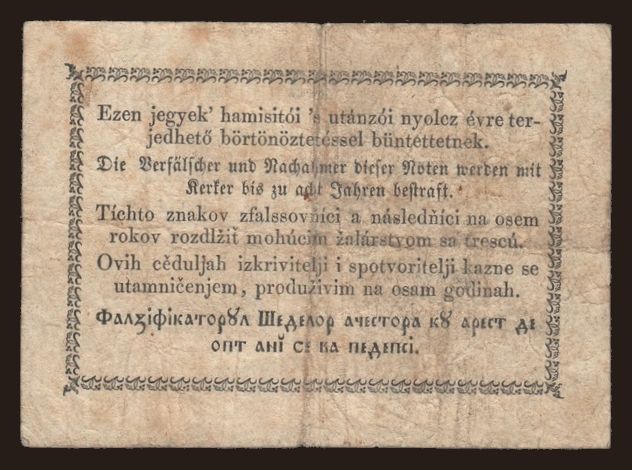 Ezen jegyek' hamisitói 's utánzói nyolcz évre ter-
jedhető börtönöztetéssel büntettetnek.
Die Verfälscher und Nachahmer dieser Noten werden mit
Kerker bis zu acht Jahren bestraft.
Tíchto znakov zfalssovňíci a následňíci na osem
rokov rozdlžiť mohúcim žalárstvom sa trescú.
Ovih cěduljah izkrivitelji i spotvoritelji kazne se
utamničenjem, produživim na osam godinah.
Фалꙃіфікаторꙋл Шеделор ачестора кꙋ арест де
опт анĭ се ва педепсі.